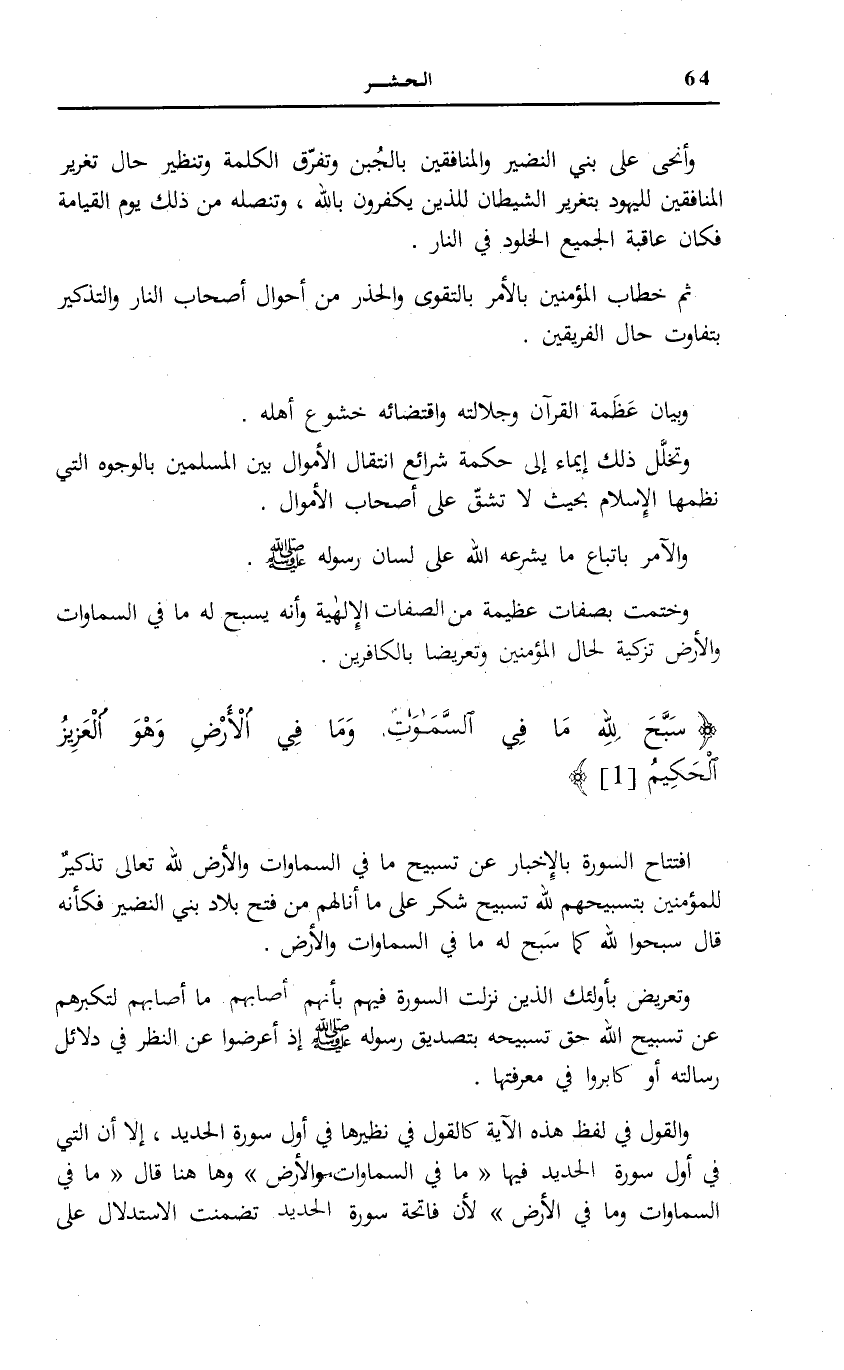 64 الحشر
وأنحى على بني النضير والمنافقين بالجُبن وتفرّق الكلمة وتنظير حال تغرير
المنافقين لليهود بتغرير الشيطان للذين يكفرون بالله ، وتنصله من ذلك يوم القيامة
فكان عاقبة الجميع الخلود في النار .
ثم خطاب المؤمنين بالأمر بالتقوى والحذر من أحوال أصحاب النار والتذكير
بتفاوت حال الفريقين .
وبيان عَظَمة القرآن وجلالته واقتضائه خشوع أهله .
وتخلَّل ذلك إيماء إلى حكمة شرائع انتقال الأموال بين المسلمين بالوجوه التي
نظمها الإِسلام بحيث لا تشقّ على أصحاب الأموال .
والآمر باتباع ما يشرعه الله على لسان رسوله ﷺ .
وختمت بصفات عظيمة من الصفات الإِلهٰية وأنه يسبح له ما في السماوات
والأرض تزكية لحال المؤمنين وتعريضا بالكافرين .
﴿ سَبَّحَ لِلَّهِ مَا فِي ٱلسَّمَـٰوَٰتِ وَمَا فِي ٱلْأَرْضِ وَهْوَ ٱلْعَزِيزُ
ٱلْحَكِيمُ [1] ﴾
افتتاح السورة بالإِخبار عن تسبيح ما في السماوات والأرض لله تعالى تذكيرٌ
للمؤمنين بتسبيحهم لله تسبيح شكر على ما أنالهم من فتح بلاد بني النضير فكأنه
قال سبحوا لله كما سَبح له ما في السماوات والأرض .
وتعريض بأولئك الذين نزلت السورة فيهم بأنهم أصابهم ما أصابهم لتكبرهم
عن تسبيح الله حق تسبيحه بتصديق رسوله ﷺ إذ أعرضوا عن النظر في دلائل
رسالته أو كابروا في معرفتها .
والقول في لفظ هذه الآية كالقول في نظيرها في أول سورة الحديد ، إلا أن التي
في أول سورة الحديد فيها « ما في السماوات والأرض » وها هنا قال « ما في
السماوات وما في الأرض » لأن فاتحة سورة الحديد تضمنت الاستدلال على